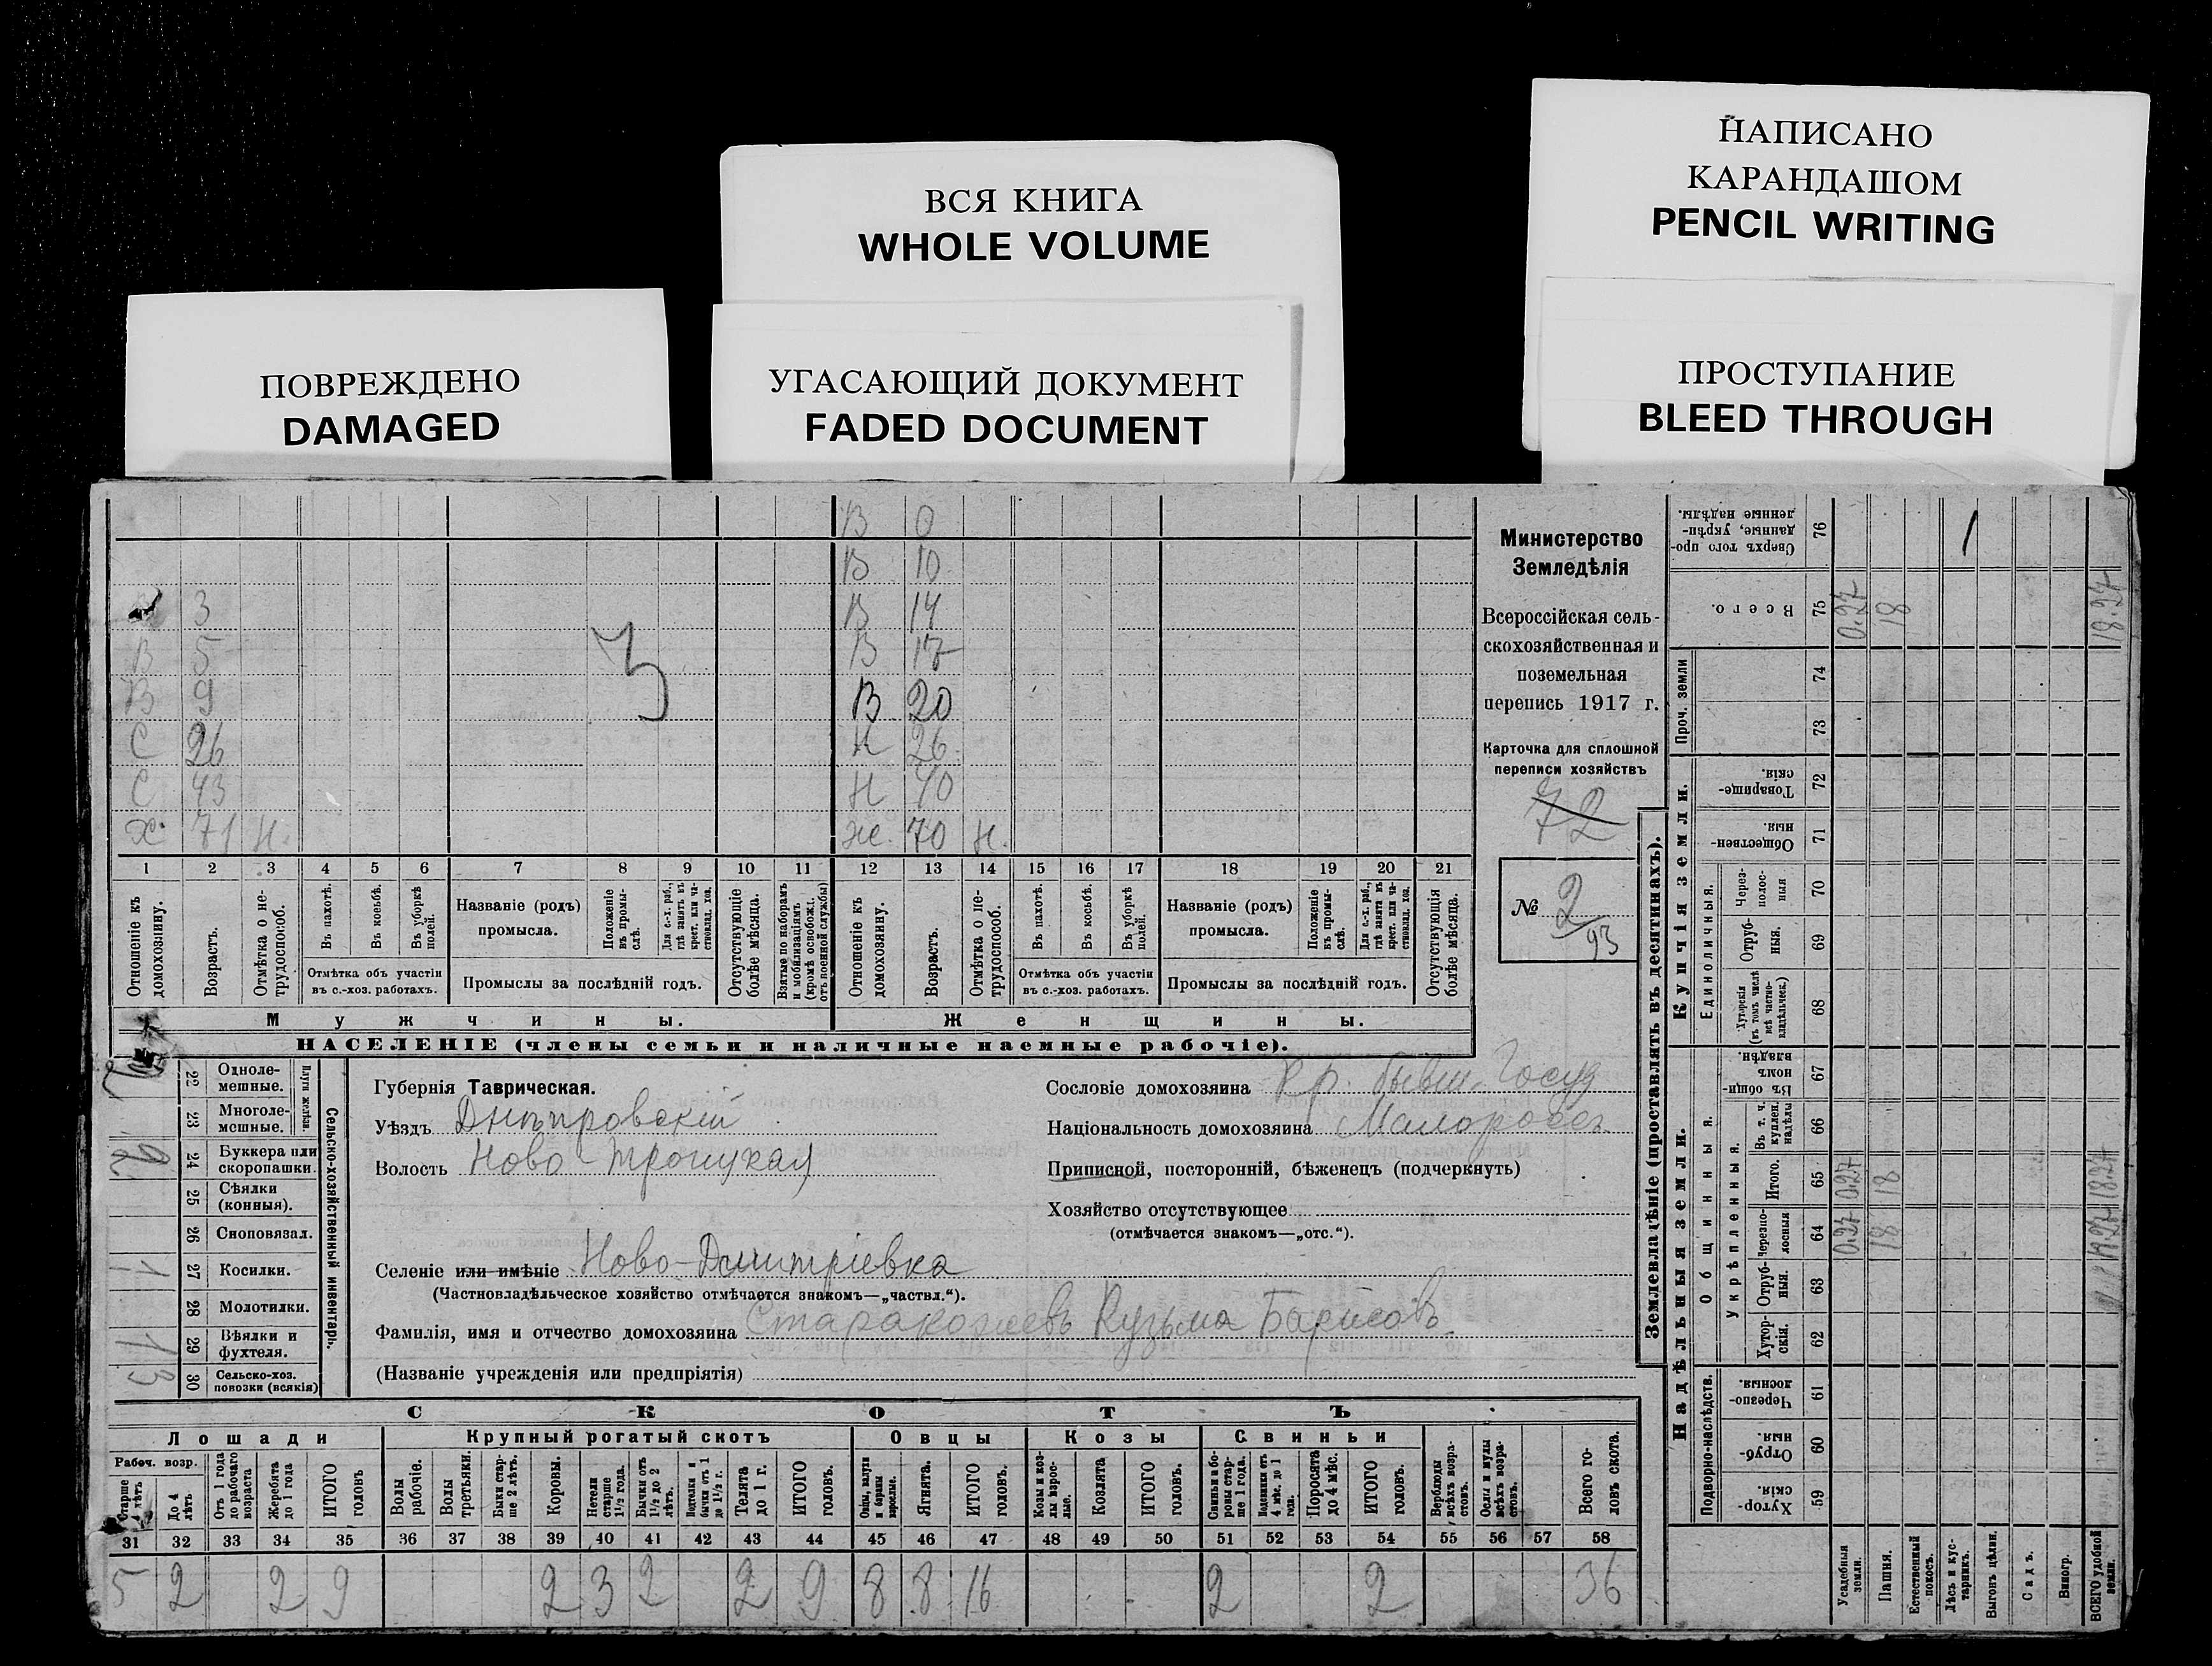 НАПИСАНО
КАРАНДАШОМ
PENCIL WRITING
ВСЯ КНИГА
WHOLE VOLUME
ПОВРЕЖДЕНО
DAMAGED
УГАСАЮЩИЙ ДОКУМЕНТ
FADED DOCUMENT
ПРОСТУПАНИЕ
BLEED THROUGH
В 0
В 10
3 В 14
В 5 В 17
В 9 В 20
З
С 26 Н 26
С 43 Н 40
Х. 71 Н. Ж. 70 Н.
1 2 3 4 5 6 7 8 9 10 11 12 13 14 15 16 17 18 19 20 21
Отношеніе къ домохозяину.
Возрастъ.
Отмѣтка о нетрудоспособ.
Въ пахотѣ.
Въ косьбѣ.
Въ уборкѣ полей.
Отмѣтка объ участіи въ с.-хоз. работахъ.
Названіе (родъ) промысла.
Положеніе въ промыслѣ.
Для с.-х. раб., гдѣ занятъ въ крест. или частновлад. хоз.
Промыслы за послѣдній годъ.
Отсутствующіе болѣе мѣсяца.
Взятые по наборамъ и мобилизаціямъ (кромѣ освобожд. отъ военной службы)
Отношеніе къ домохозяину.
Возрастъ.
Отмѣтка о нетрудоспособ.
Въ пахотѣ.
Въ косьбѣ.
Въ уборкѣ полей.
Отмѣтка объ участіи въ с.-хоз. работахъ.
Названіе (родъ) промысла.
Положеніе въ промыслѣ.
Для с.-х. раб., гдѣ занята въ крест. или частновлад. хоз.
Промыслы за послѣдній годъ.
Отсутствующія болѣе мѣсяца.
Мужчины. Женщины.
НАСЕЛЕНІЕ (члены семьи и наличные наемные рабочіе).
Министерство
Земледѣлія
Всероссійская сель-
скохозяйственная и
поземельная
перепись 1917 г.
Карточка для сплошной
переписи хозяйствъ
72
№ 2/93
Губернія Таврическая.
Уѣздъ Днѣпровскій
Волость Ново-Троицкая
Селеніе или имѣніе Ново-Дмитріевка
(Частновладѣльческое хозяйство отмѣчается знакомъ—„частвл.“).
Фамилія, имя и отчество домохозяина Старакожевъ Кузьма Барисовъ
(Названіе учрежденія или предпріятія)
Сословіе домохозяина Кр. бывш. Госуд
Національность домохозяина Малороссъ
Приписной, посторонній, бѣженецъ (подчеркнуть)
Хозяйство отсутствующее
(отмѣчается знакомъ—„отс.“).
Сельско-хозяйственный инвентарь.
Плуги желѣзн.
22 Одноле-
мешные.
23 Многоле-
мешные.
2 24 Буккера или
скоропашки.
25 Сѣялки
(конныя).
26 Сноповязал.
1 27 Косилки.
28 Молотилки.
1 29 Вѣялки и
фухтеля.
3 30 Сельско-хоз.
повозки (всякія)
СКОТЪ
Лошади Крупный рогатый скотъ Овцы Козы Свиньи
Рабоч. возр.
Старше 4 лѣтъ
До 4 лѣтъ
Отъ 1 года до рабочаго возраста
Жеребята до 1 года
ИТОГО головъ
Волы рабочіе.
Волы третьяки.
Быки старше 2 лѣтъ.
Коровы.
Нетели старше 1½ года.
Бычки отъ 1½ до 2 лѣтъ.
Подтелки и бычки отъ 1 до 1½ г.
Телята до 1 г.
ИТОГО головъ.
Овцы, валухи и бараны взрослые.
Ягнята.
ИТОГО головъ.
Козы и козлы взрослые.
Козлята
ИТОГО головъ.
Свиньи и боровы старше 1 года.
Подсвинки отъ 4 мѣс. до 1 года.
Поросята до 4 мѣс.
ИТОГО головъ.
Верблюды всѣхъ возрастовъ.
Ослы и мулы всѣхъ возрастовъ.
Всего головъ скота.
31 32 33 34 35 36 37 38 39 40 41 42 43 44 45 46 47 48 49 50 51 52 53 54 55 56 57 58
5 2 2 9 2 3 2 2 9 8 8 16 2 2 36
Землевладѣніе (проставлять въ десятинахъ).
Надѣльныя земли. Купчія земли.
Подворно-наслѣдств.
Общинныя.
Укрѣпленныя.
Единоличныя.
Проч. земли
Хуторскія. 59
Отрубныя. 60
Черезполосныя 61
Хуторскія. 62
Отрубныя. 63
Черезполосныя 64 0.27 18 18.27
Итого. 65 0.27 18 18.27
Въ т. ч. куплен. надѣлы 66
Въ общинномъ владѣн. 67
Хуторскія (въ томъ числѣ всѣ частновладѣльческ.) 68
Отрубныя. 69
Черезполосныя 70
Общественныя. 71
Товарищескія. 72
73
74
Всего. 75 0.27 18 18.27
Сверхъ того проданные, укрѣпленные надѣлы. 76
Усадебныя земли.
Пашня.
Естественный покосъ.
Лѣсъ и кустарникъ.
Выгонъ цѣлин.
Садъ.
Виногр.
ВСЕГО удобной земли.